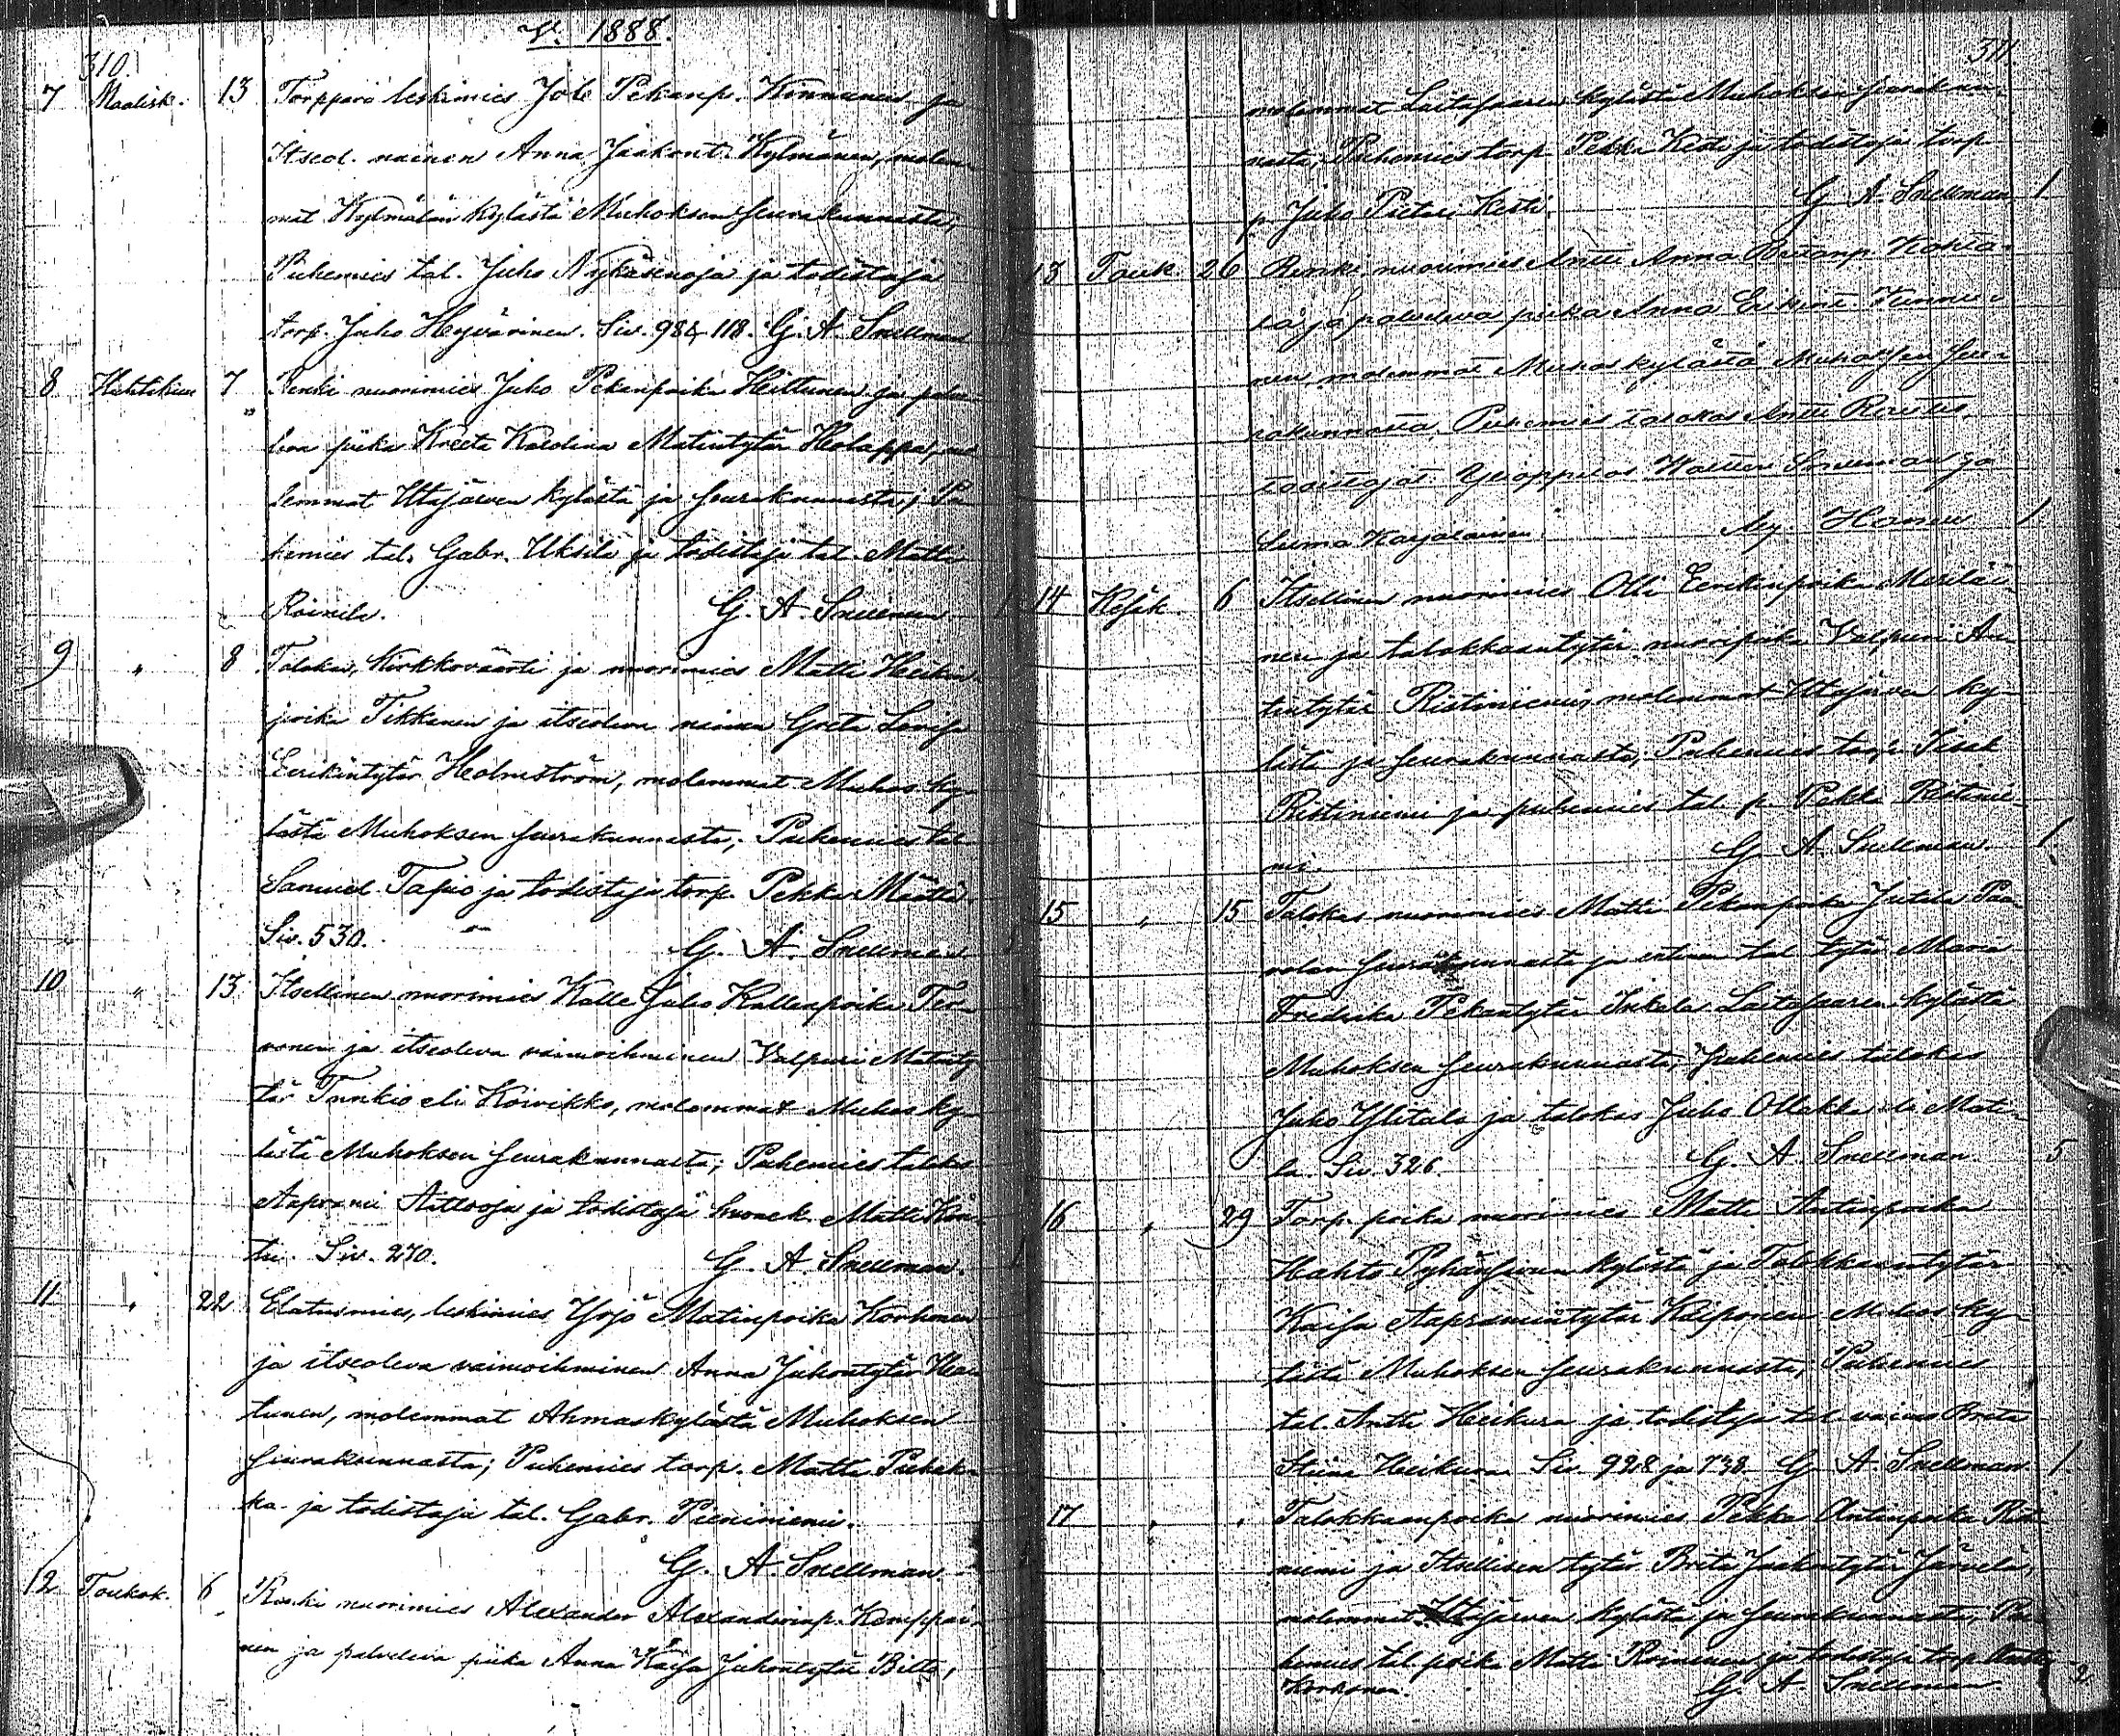 V. 1888.
310.
7 Maalisk. 13 Torppari leskimies Job Pekanp. Kinnunen ja
Itseol. nainen Anna Jaakont. Kylmänen, molem-
mat Kylmälän kylästä Muhoksen seurakunnasta;
Puhemies tal. Juho Nykäsenoja ja todistaja
torp. Juho Hyvärinen. Siv. 98 118. G. A. Snellman
8 Huhtikuu 7 Renki nuorimies Juho Pekanpoika Hiltunen ja palve-
leva piika Kreeta Karolina Matintytär Holappa, mo-
lemmat Utajärven kylästä ja seurakunnasta; Pu-
hemies tal. Gabr. Uksila ja todistaja tal. Matti
Roinila. G. A. Snellman 1
9 " 8 Talokas, Kirkkoväärti ja nuorimies Matti Heikin-
poika Tikkanen ja itseoleva nainen Greta Lovisa
Eerikintytär Holmström, molemmat Muhos ky-
lästä Muhoksen seurakunnasta; Puhemies tal.
Samuel Tapio ja todistaja torp. Pekka Määttä.
Siv. 530. G. A. Snellman
10 " 13 Itsellinen nuorimies Kalle Juho Kallenpoika Ter-
vonen ja itseoleva vaimoihminen Valpuri Matinty-
tär Tunkio eli Koivikko, molemmat Muhos ky-
lästä Muhoksen seurakunnasta; Puhemies talokas
Aaprami ja todistaja Matti
Siv. 270. G. A. Snellman. 1
11 " 22 leskimies Yrjö Matinpoika Korhonen
ja itseoleva vaimoihminen Anna Juhontytär
tunen, molemmat Ahmaskylästä Muhoksen
seurakunnasta; Puhemies torp. Matti Puhak-
ka ja todistaja tal. Gabr. Pieniniemi.
G. A. Snellman
12 Toukok. 6 Renki nuorimies Alexander Alexanderinp. Kemppai-
nen ja palveleva piika Anna Kaisa Juhontytär
311.
molemmat Laitasaaren kylästä Muhoksen seurakun-
nasta; Puhemies torp. Pekka Kesti ja todistaja torp.
p. Juho Pietari Kesti. G. A. Snellman 1
13 Touk. 26 Renki nuorimies Antti
ja palveleva piika Anna Erkint.
nen, molemmat Muhos kylästä Muhoksen seu-
rakunnasta. Puhemies talokas Antti
todistajat: Yliopp. Snellman ja
Karjalainen. 1
14 Kesäk. 6 Itsellinen nuorimies Olli Eerikinpoika Meriläi-
nen ja talokkaantytär nuoripiika Valpuri An-
tintytär Ristiniemi, molemmat Utajärven ky-
lästä ja seurakunnasta; Puhemies torp. Isak
Ristiniemi ja puhemies tal. p. Pekka Ristinie-
mi. G. A. Snellman. 1
15 " 15 Talokas nuorimies Matti Pekanpoika Jutila Paa-
volan seurakunnasta ja entinen tal. tytär Maria
Fredrika Pekantytär Inkala Laitasaaren kylästä
Muhoksen seurakunnasta; puhemies talokas
Juho Ylitalo ja talokas Juho Ollakka eli Mati-
la. Siv. 326. G. A. Snellman. 5
16 " 29 Torp. poika nuorimies Matti Antinpoika
Hahto Pyhänsivun kylästä ja Talokkaantytär
Kaisa Aapramintytär Kaiponen Muhos ky-
lästä Muhoksen seurakunnasta; Puhemies
tal. Antti Heikura ja todistaja tal. vaimo Brita
Stiina Heikura. Siv. 928 ja 738. G. A. Snellman 1
17 " " Talokkaanpoika nuorimies Pekka Antinpoika Risti-
niemi ja Itsellisen tytär Brita Jaakontytär Järvelä,
molemmat Utajärven kylästä ja seurakunnasta; Pu-
hemies tal. poika Matti Roininen ja todistaja torp. Antti
Korhonen. G. A. Snellman 2